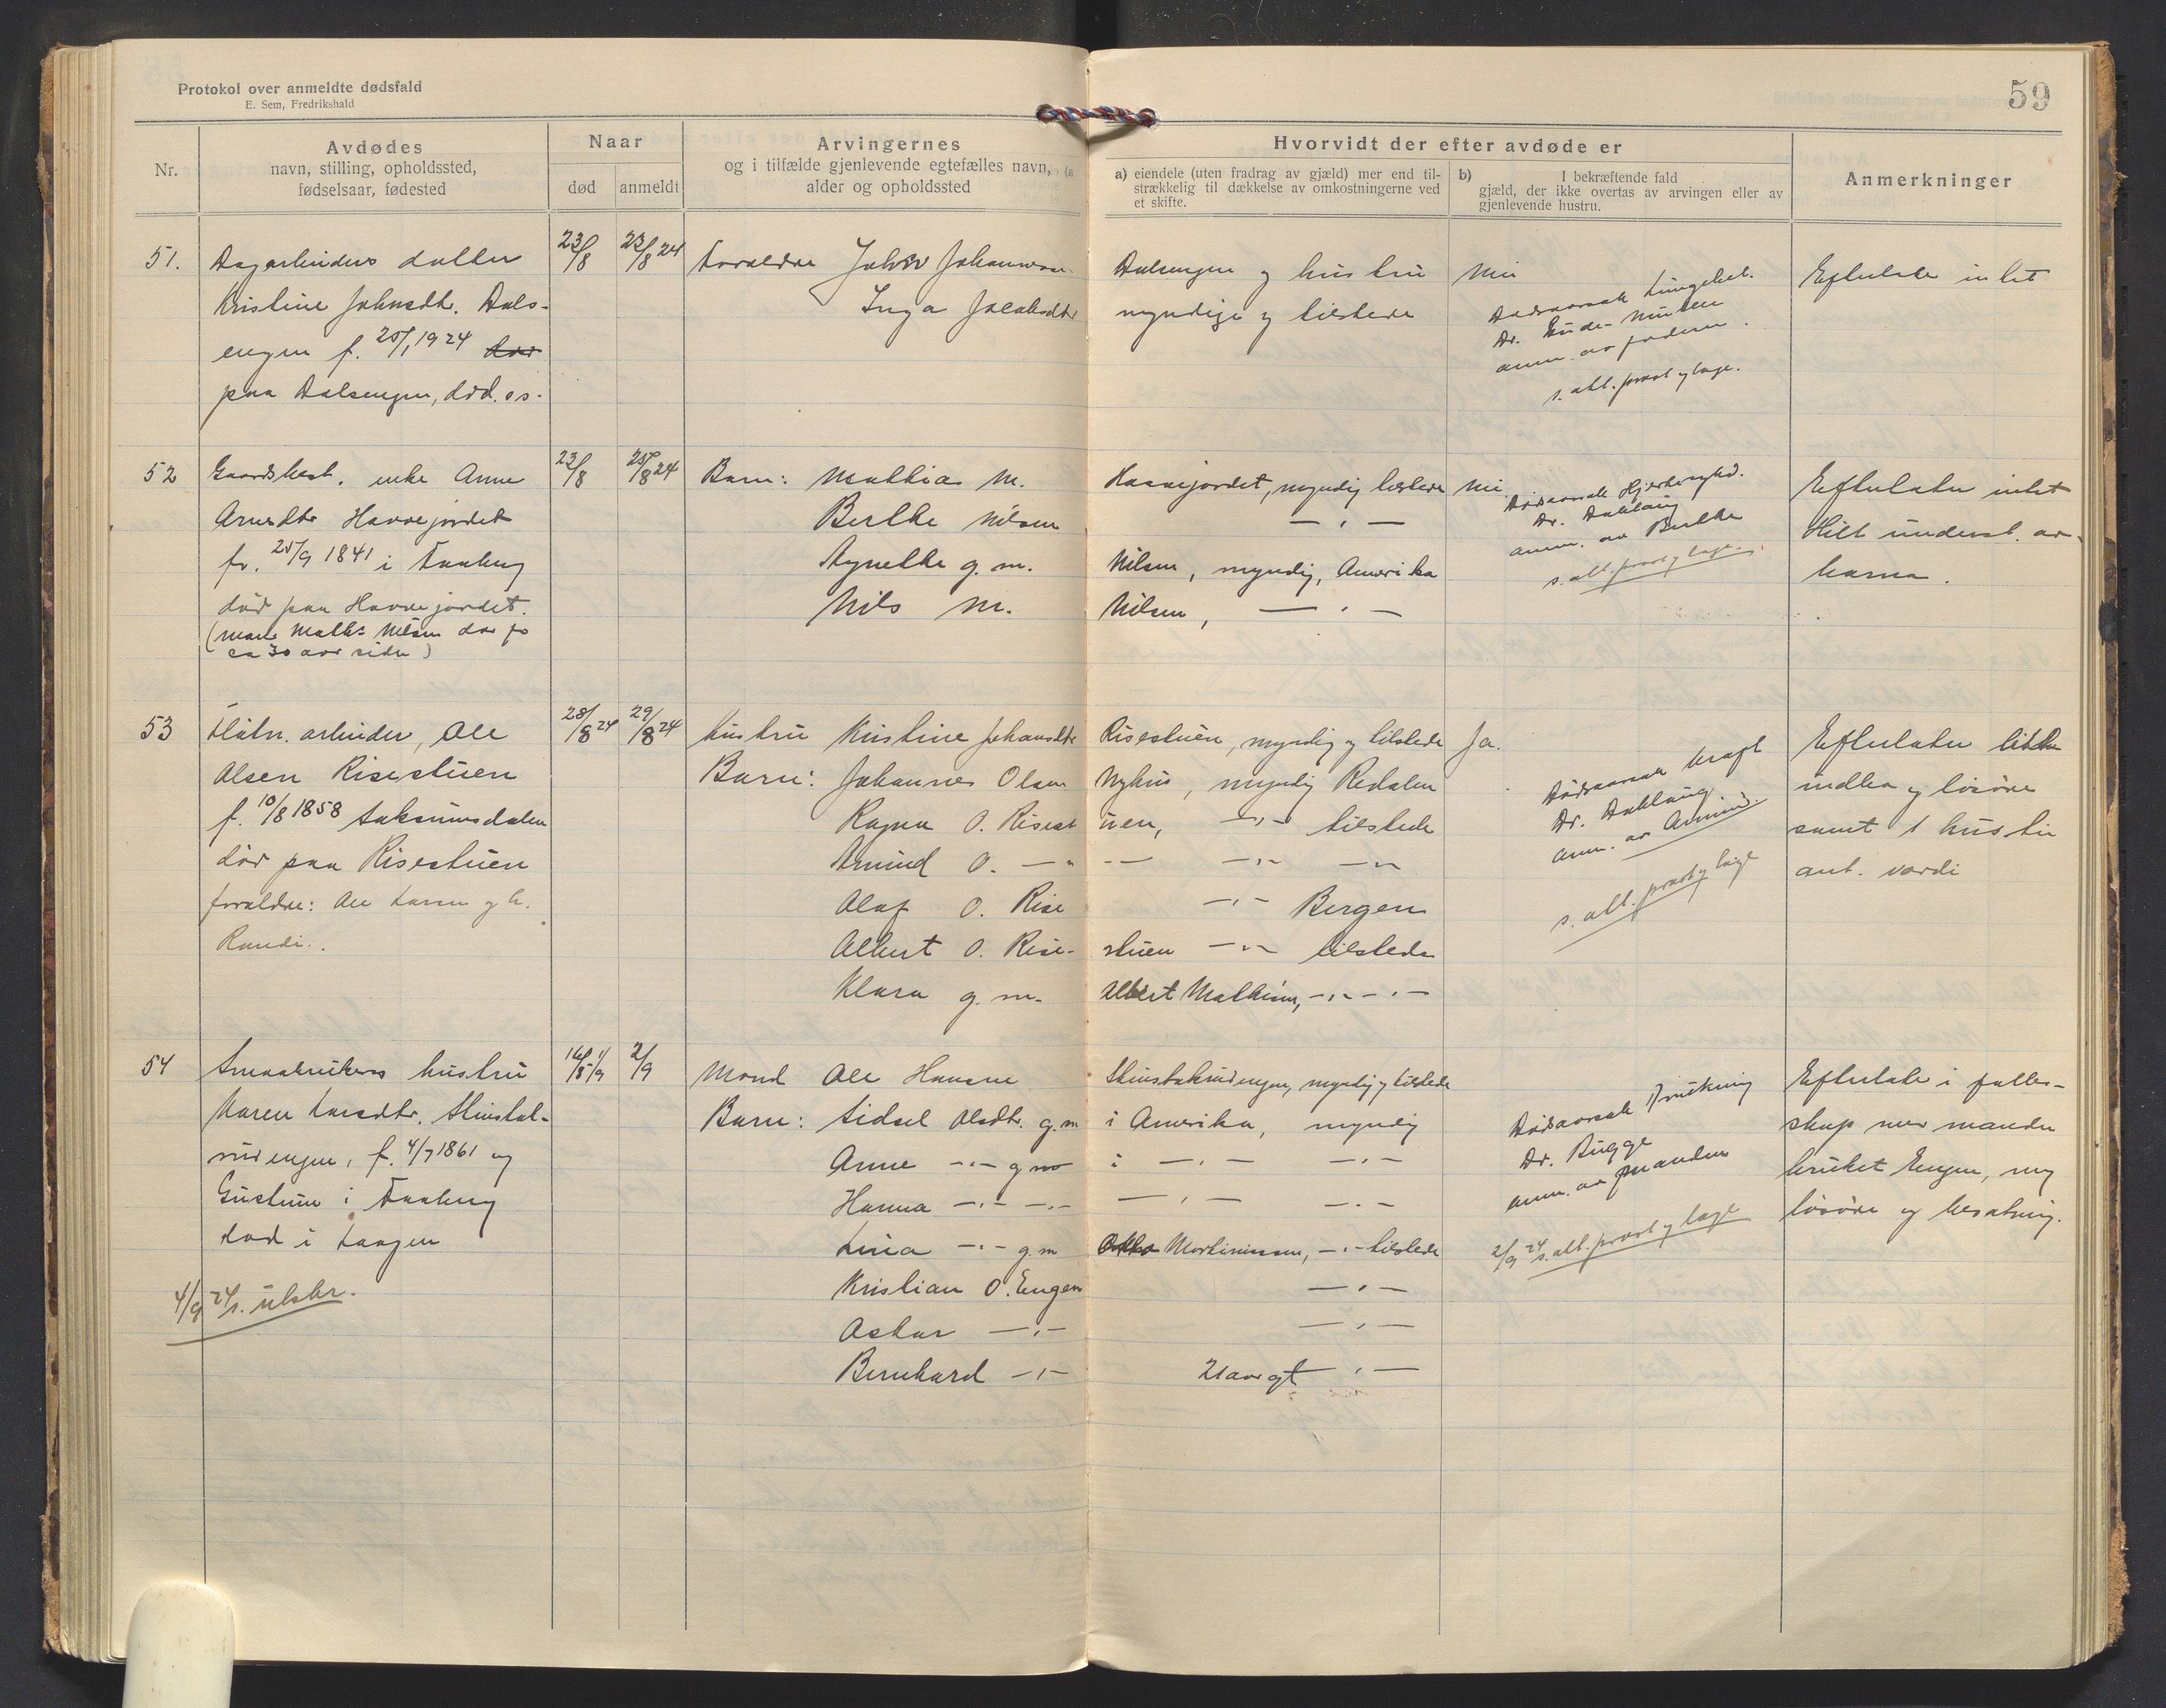 Protokol over anmeldte dødsfald
E. Sem, Fredrikshald
59
Nr.
Avdødes
navn, stilling, opholdssted,
fødselsaar, fødested
Naar
død
anmeldt
Arvingernes
og i tilfælde gjenlevende egtefælles navn,
alder og opholdssted
Hvorvidt der efter avdøde er
a) eiendele (uten fradrag av gjæld) mer end til-
strækkelig til dækkelse av omkostningerne ved
et skifte.
b) I bekræftende fald
gjæld, der ikke overtas av arvingen eller av
gjenlevende hustru.
Anmerkninger
51.
Dagarbeiders datter
Kristine Johnsdtr. Dals-
engen f. 25/1 1924
paa Dalsengen, død. os.
23/8
23/8 24
Forældre John Johannesen
Inga Jacobsdtr
Dalsengen og hustru
myndige og tilstede
Nei
Dødsaarsak Lungebet.
Dr. Gude-
anm. av faderen.
s. att. prost og læge.
Efterlate intet
52
Gaardbest. enke Anne
Arnesdtr Havrejordet
f. 25/9 1841 i Faaberg
død paa Havrejordet.
(mann Math: Nilsen død for
ca 30 aar siden)
23/8
25/8 24
Barn: Mathias M.
Berthe Nilsen
Agnethe g. m.
Nils M.
Havrejordet, myndig tilstede
— " —
Nilsen, myndig, Amerika
Nilsen, — " —
Nei
Dødsaarsak Hjertesykd.
Dr. Dahlaug
anm. av Berthe
s. att. prost og læge.
Efterlater intet
Hatt underst. av
barna.
53
Fløtn. arbeider, Ole
Olsen Risestuen
f. 10/8 1858 Saksumsdalen
død paa Risestuen
forældre: Ole Larsen og h.
Randi.
28/8 24
29/8 24
Hustru Kristine Johansdtr
Barn: Johannes Olsen
Ragna O. Risest
Amund O. — "
Olaf O. Rise
Albert O. Rise-
Klara g. m.
Risestuen, myndig og tilstede
Nyhus, myndig Redalen
uen, —"— tilstede
— —"— —"
—"— Bergen
stuen —"— tilstede
Albert Mathisen, —"— —"—
Ja.
Dødsaarsak kræft
Dr. Dahlaug
anm. av Amund.
s. att. prost og læge
Efterlater litt
indbo og løsøre
samt 1 hus til
ant. værdi
54
Smaabrukers hustru
Karen Larsdtr. Stinstak-
rudengen, f. 4/7 1861 og
i Faaberg
død i Laagen
4/9 24 s. utskr.
16/8 1/9
2/9
Mand Ole Hansen
Barn: Sidsel Olsdtr. g. m
Anne —"— g m
Hanna —"— —"—
Lina —"— g. m
Kristian O. Engen
Oskar —"—
Bernhard —"—
Stinstakrudengen, myndig og tilstede
i Amerika, myndig
i —"— —"—
—"— —"—
Otto Mortinussen, —"— tilstede
—"—
—"—
21 aar gl —"—
Dødsaarsak Drukning
Dr. Bugge
anm. av manden
2/9 24 s. att. prost og læge
Efterlate i fælles-
skap med manden
bruket Engen, med
løsøre og besætning.